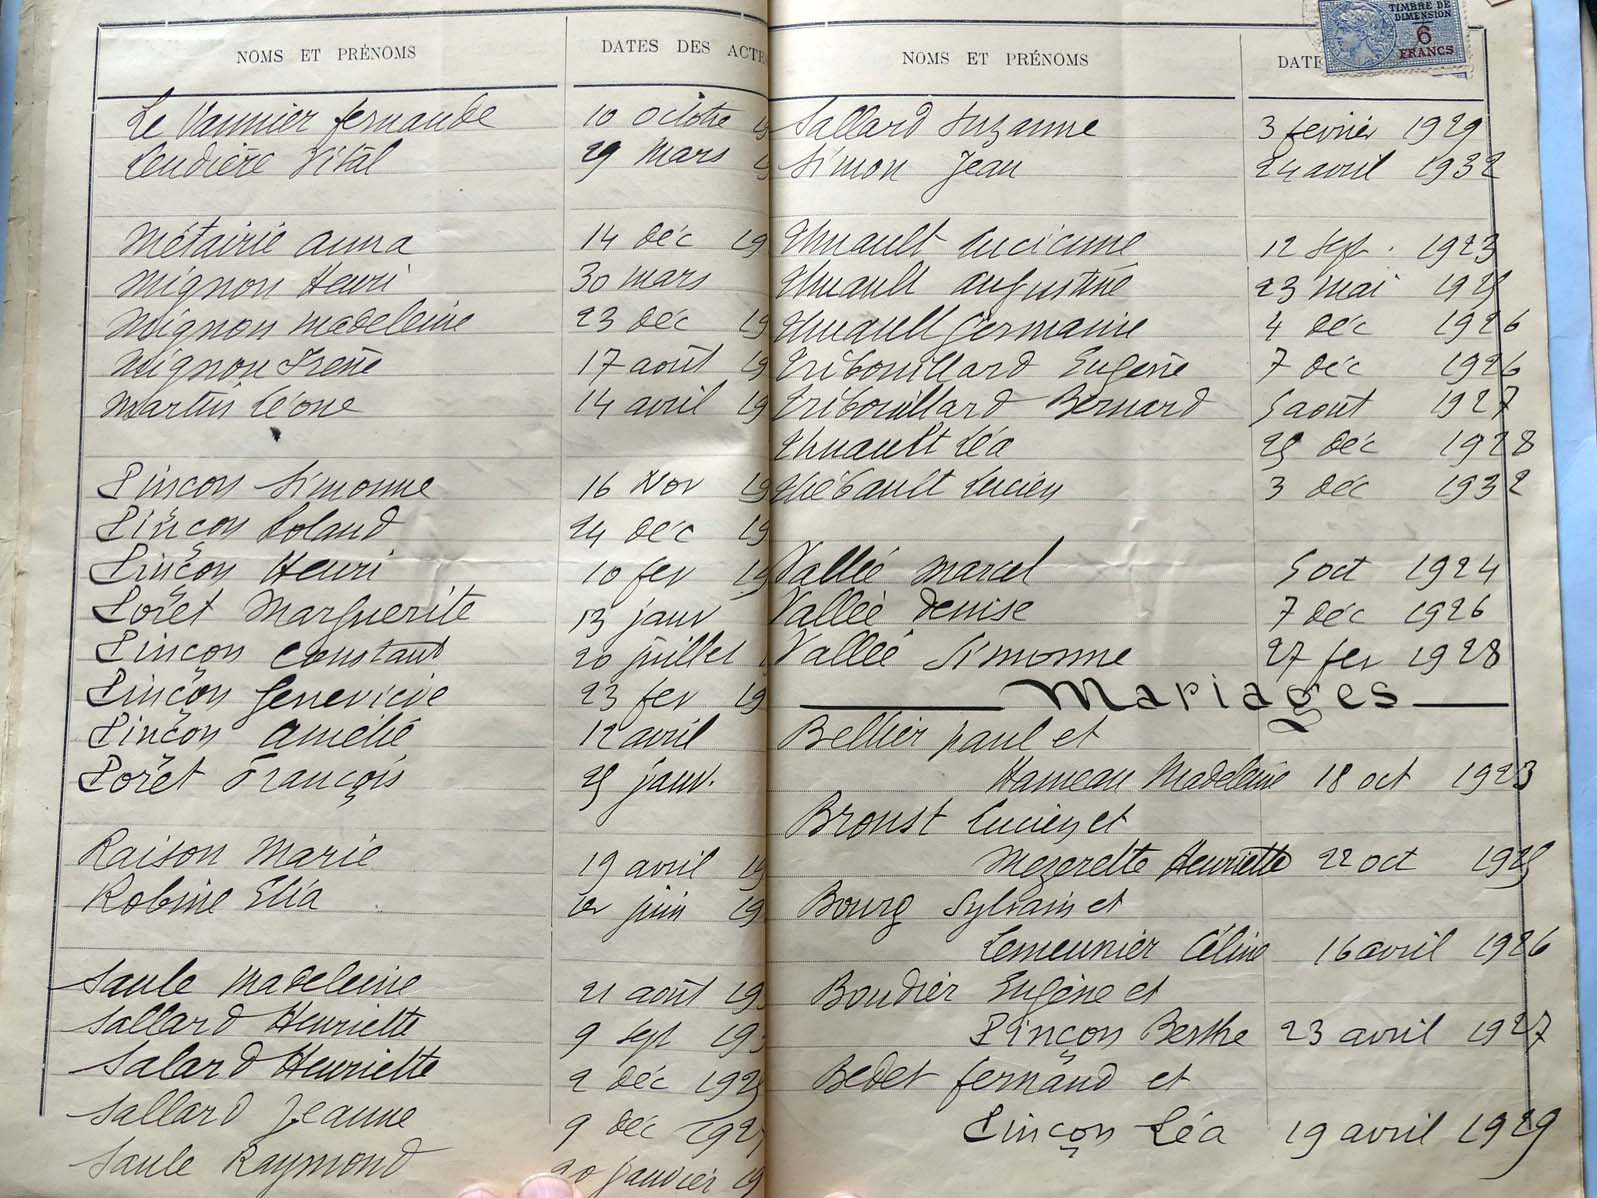 NOMS ET PRÉNOMS DATES DES ACTE
Le Vannier fernande 10 octobre
Lendière Vital 29 mars
Métairie anna 14 déc 19
Mignon Henri 30 mars
Mignon madeleine 23 déc 19
Mignon Irène 17 août 19
Martin Léone 14 avril 19
Pinçon Simonne 16 Nov 19
Pinçon Roland 24 déc 19
Pinçon Henri 10 fev 19
Poret Marguerite 13 janv
Pinçon Constant 20 juillet
Pinçon Geneviève 23 fev 19
Pinçon Amélie 12 avril
Poret François 25 janv.
Raison Marie 19 avril 19
Robine Elia 1er juin 19
Saule Madeleine 21 août 19
Sallard Henriette 9 sept 19
Salard Henriette 2 déc 1925
Sallard Jeanne 9 déc 1927
Saule Raymond 20 janvier 19
NOMS ET PRÉNOMS DATE
TIMBRE DE
DIMENSION
6
FRANCS
Sallard Suzanne 3 fevrier 1929
Simon Jean 24 avril 1932
Thuault Lucienne 12 sept. 1923
Thuault Augustine 23 mai 1925
Thuault Germaine 4 déc 1926
Tribouillard Eugène 7 déc 1926
Tribouillard Bernard 5 août 1927
Thuault Léa 25 déc 1928
Thiébault Lucien 3 déc 1932
Vallée Marcel 5 oct 1924
Vallée Denise 7 déc 1926
Vallée Simonne 27 fev 1928
Mariages
Bellier paul et
Hameau Madeleine 18 oct 1923
Broust Lucien et
Mezerette Henriette 22 oct 1925
Bourg Sylvain et
Lemeunier Céline 16 avril 1926
Boudier Eugène et
Pinçon Berthe 23 avril 1927
Bedet fernand et
Pinçon Léa 19 avril 1929